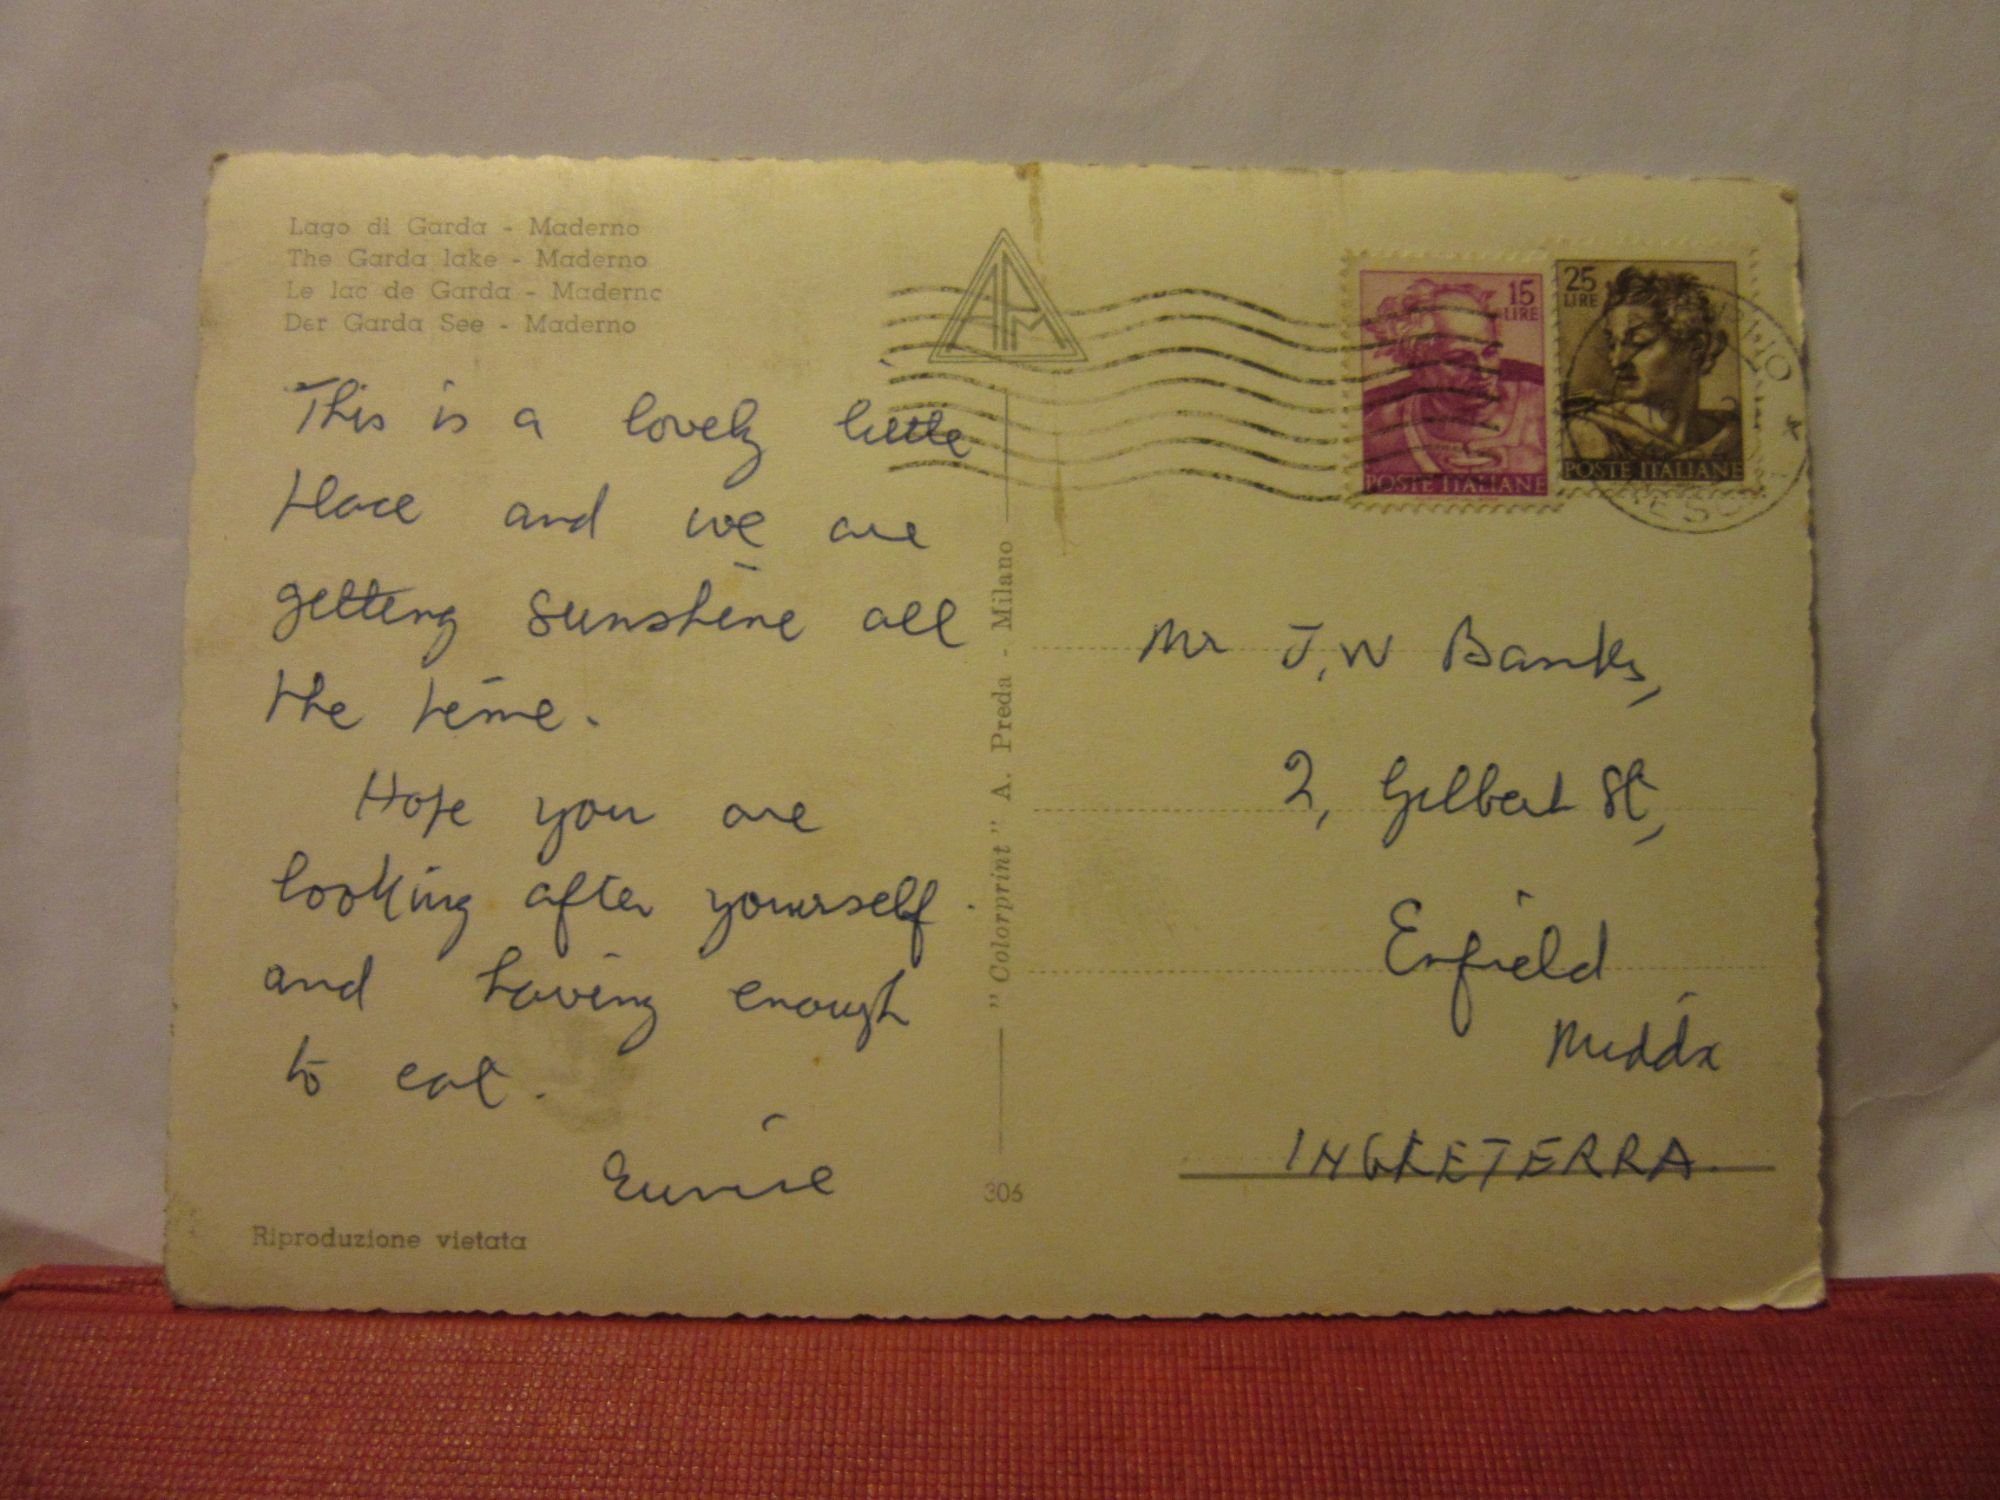 Lago di Garda - Maderno
The Garda lake - Maderno
Le lac de Garda - Maderno
Der Garda See - Maderno
This is a lovely little
place and we are
getting sunshine all
the time.
Hope you are
looking after yourself
and having enough
to eat.
Eunice
Riproduzione vietata
APM
"Colorprint" A. Preda - Milano
306
15
LIRE
POSTE ITALIANE
25
LIRE
POSTE ITALIANE
Mr J.W Banks,
2, Gilbert St,
Enfield
Middx
INGLETERRA